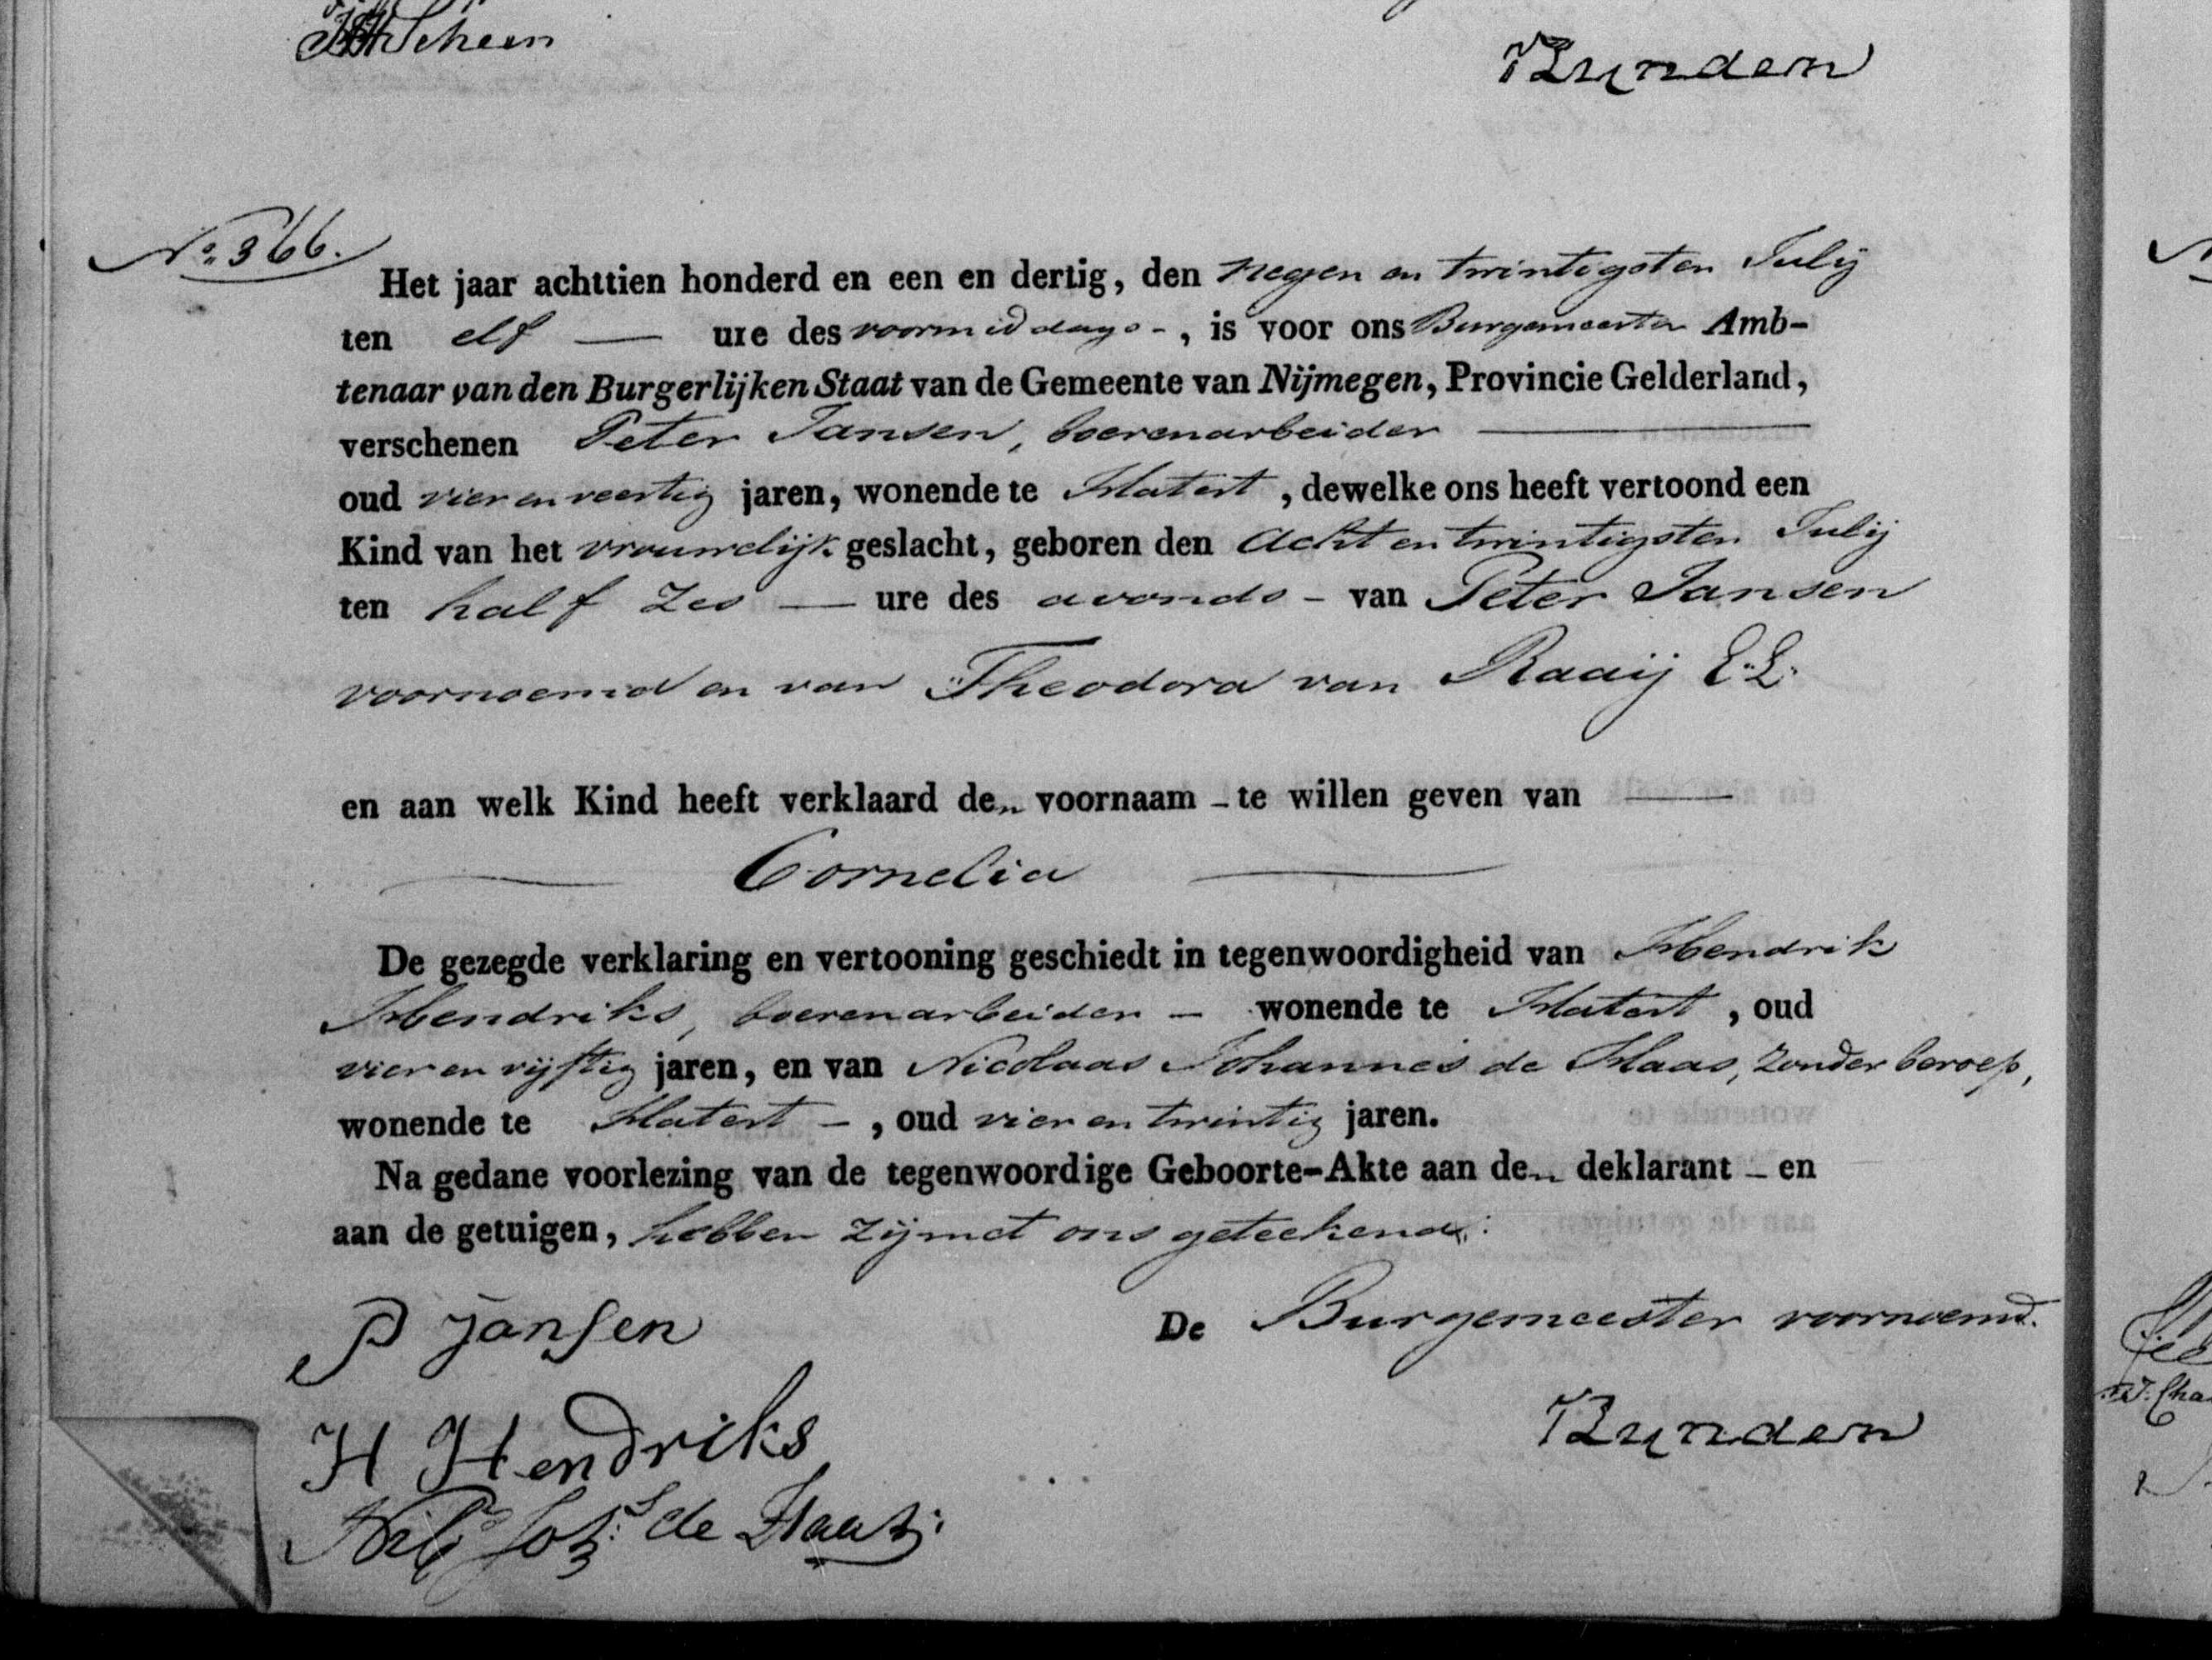 Scheers
Bunden
No. 366.
Het jaar achttien honderd en een en dertig, den negen en twintigsten Julij
ten elf — ure des voormiddags -, is voor ons Burgemeester Amb-
tenaar van den Burgerlijken Staat van de Gemeente van Nijmegen, Provincie Gelderland,
verschenen Peter Jansen, boerenarbeider —
oud vier en veertig jaren, wonende te Hatert, dewelke ons heeft vertoond een
Kind van het vrouwelijk geslacht, geboren den acht en twintigsten Julij
ten half zes — ure des avonds - van Peter Jansen
voornoemd en van Theodora van Raaij E.L.
en aan welk Kind heeft verklaard den voornaam - te willen geven van —
— Cornelia —
De gezegde verklaring en vertooning geschiedt in tegenwoordigheid van Hendrik
Hendriks, boerenarbeider - wonende te Hatert, oud
vier en vijftig jaren, en van Nicolaas Johannes de Haas, zonder beroep,
wonende te Hatert -, oud vier en twintig jaren.
Na gedane voorlezing van de tegenwoordige Geboorte-Akte aan den deklarant - en
aan de getuigen, hebben zij met ons geteekend:
P Jansen
De Burgemeester voornoemd.
H Hendriks
Bunden
de Haas